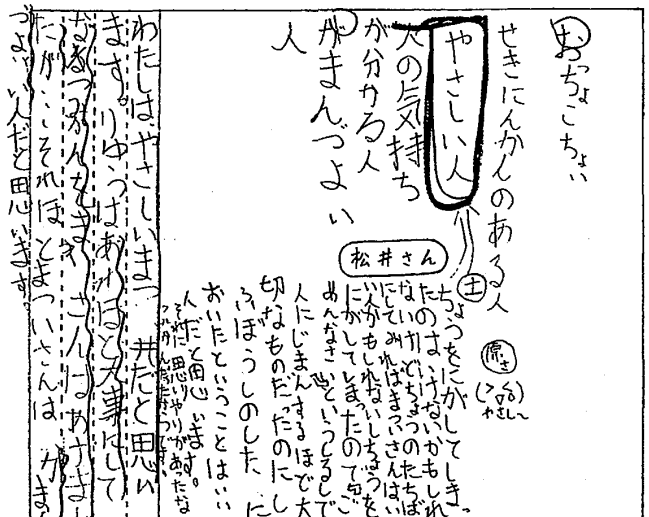 おっちょこちょい
せきにんかんのある人
やさしい人
人の気持ち
が分かる人
がまんづよい
人
松井さん
土
原さ
やさしー
ちょうをにがしてしまっ
たのはいけないかもしれ
ないけどちょうのたちば
にしてみればまついさんはい
い人かもしれないしちょうを
にがしてしまったので、ご
めんなさいというしるしで
人にじまんするほど大
切なものだったのにし
ぶぼうしのした に
おいたということはいい
人だと思います。
それに思いやりがあったな
わたしは、やさしいまつ 井だと思い
ます。りゆうはあれほど大事にして
なつかんをま さんはあげまし
たが…それほどまついさんは がま
づよい人だと思います。